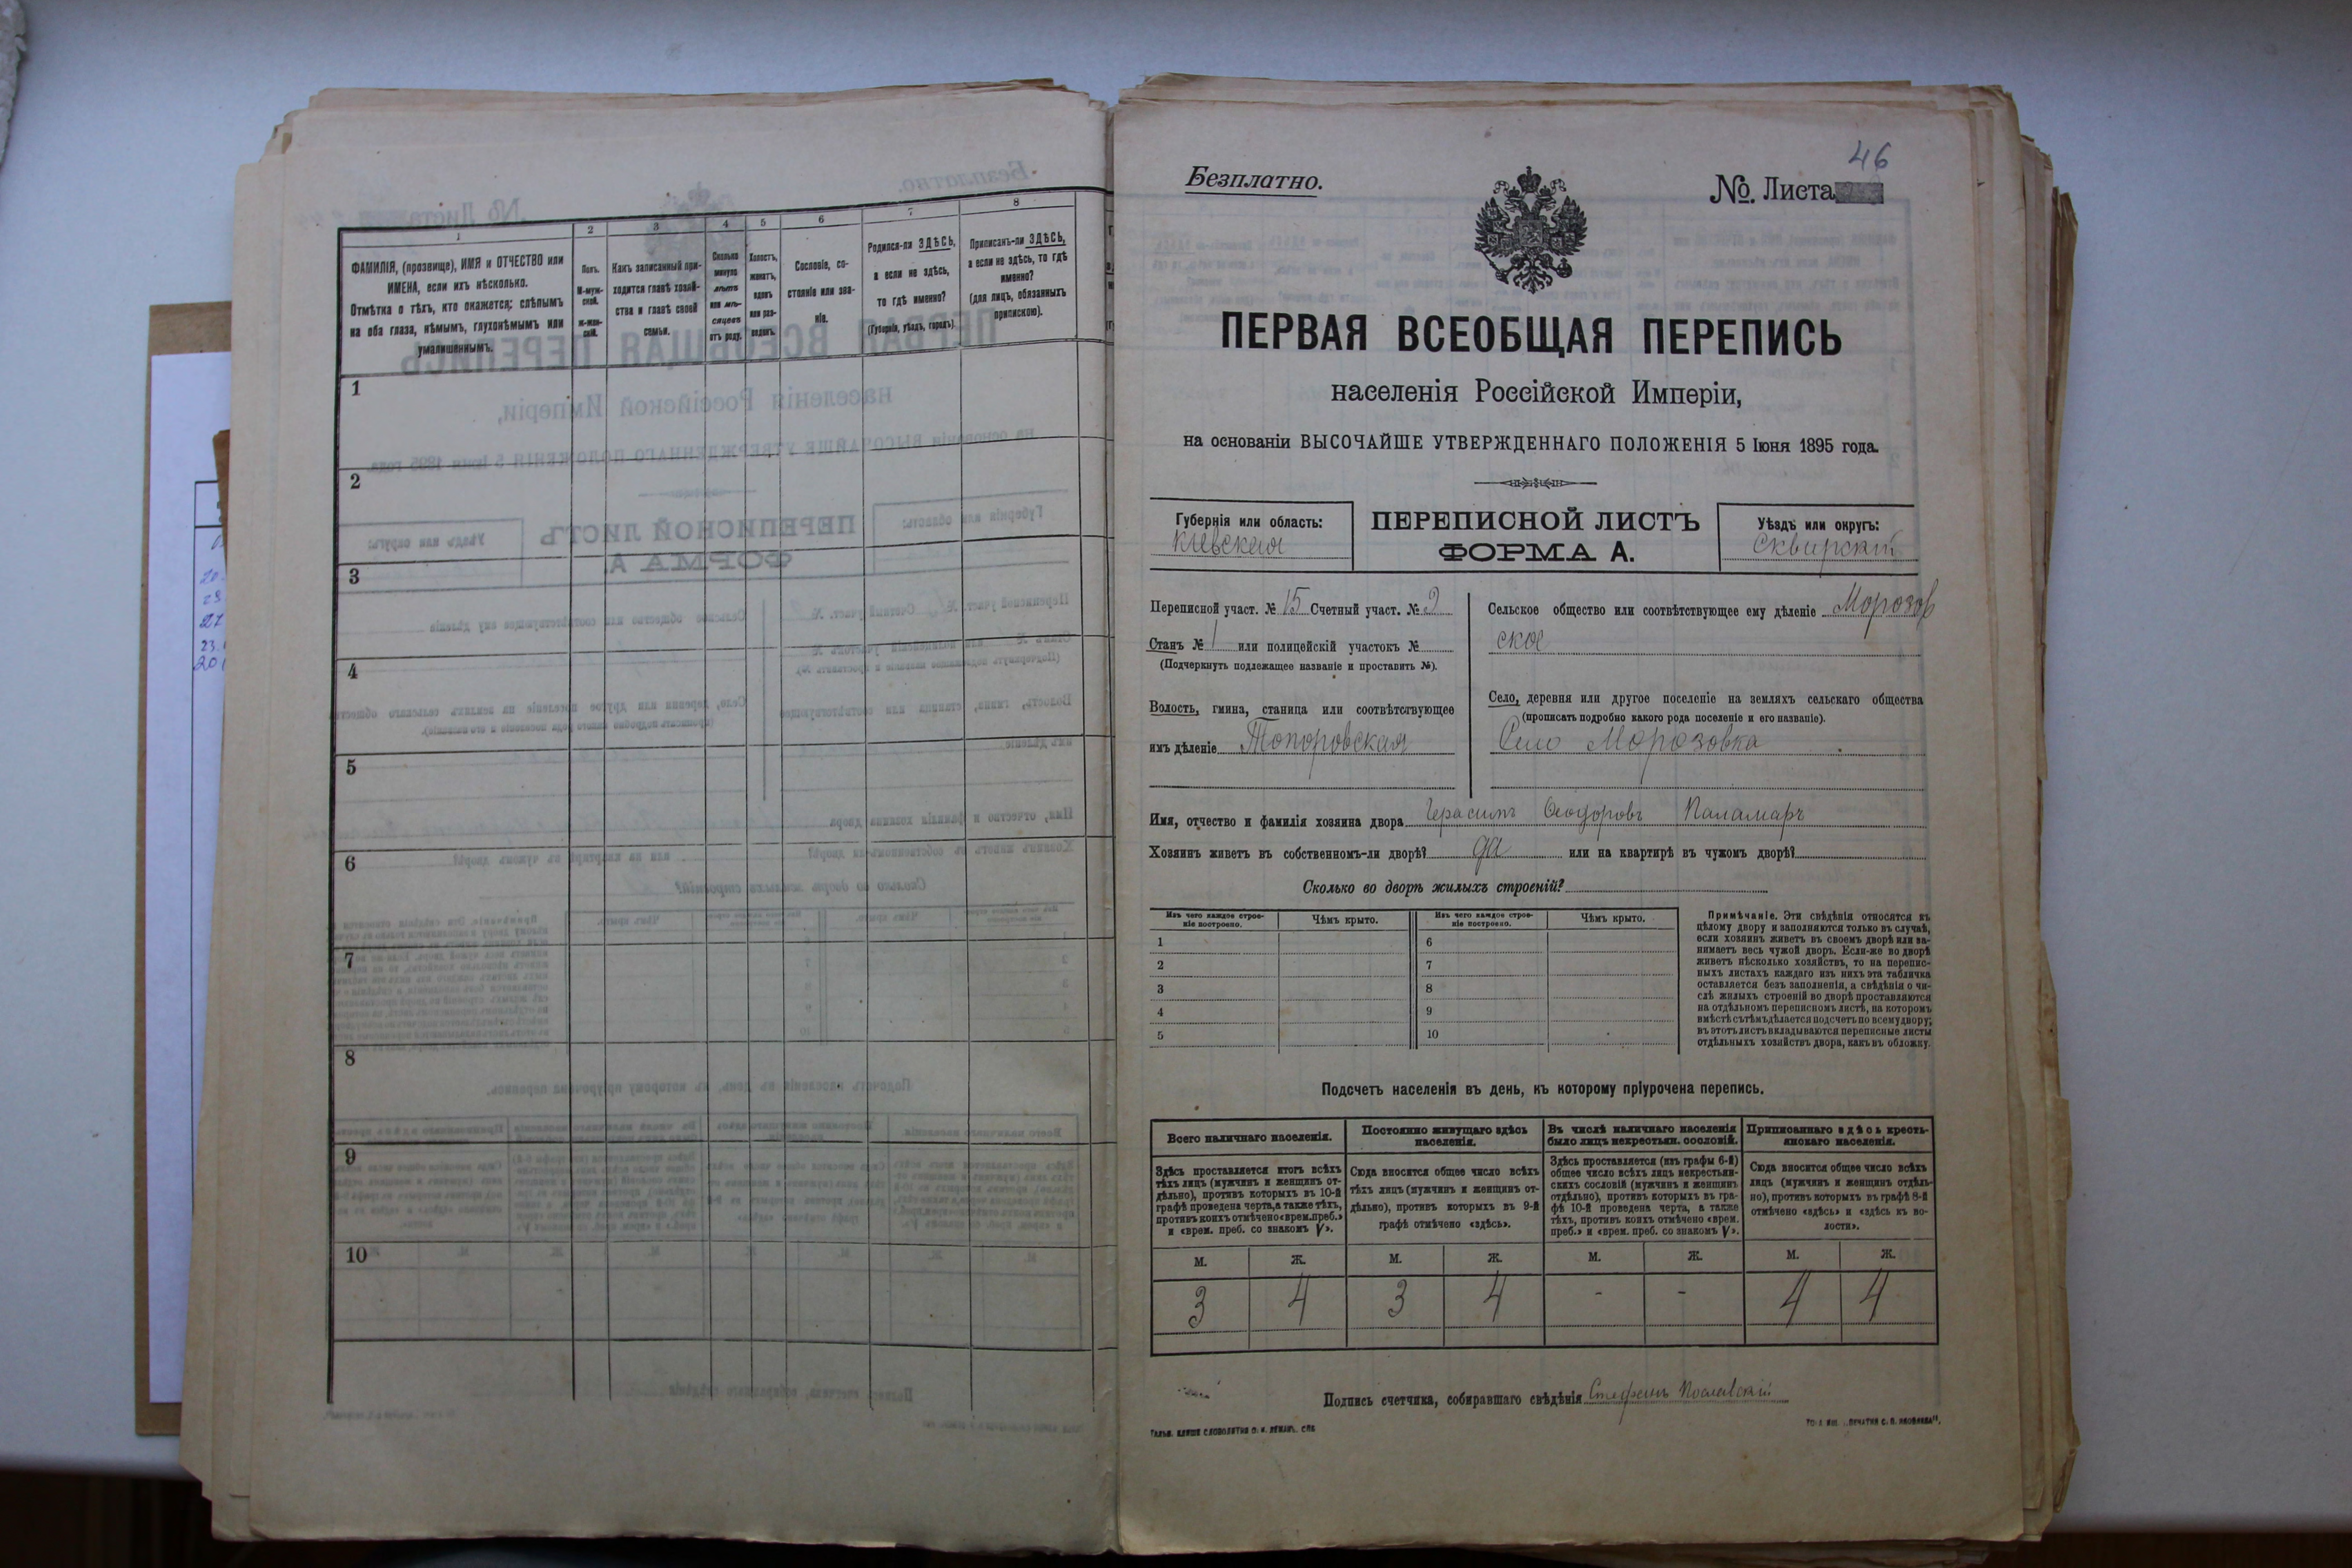 1
2
3
4
5
6
7
8
ФАМИЛІЯ, (прозвище), ИМЯ и ОТЧЕСТВО или
ИМЕНА, если ихъ нѣсколько.
Отмѣтка о тѣхъ, кто окажется: слѣпымъ
на оба глаза, нѣмымъ, глухонѣмымъ или
умалишеннымъ.
Полъ.
М-муж-
ской.
Ж-жен-
скій.
Какъ записанный при-
ходится главѣ хозяй-
ства и главѣ своей
семьи.
Сколько
минуло
лѣтъ
или мѣ-
сяцевъ
отъ роду.
Холостъ,
женатъ,
вдовъ
или раз-
веденъ.
Сословіе, со-
стояніе или зва-
ніе.
Родился-ли ЗДѢСЬ,
а если не здѣсь,
то гдѣ именно?
(Губернія, уѣздъ, городъ)
Приписанъ-ли ЗДѢСЬ,
а если не здѣсь, то гдѣ
именно?
(для лицъ, обязанныхъ
припискою).
1
2
3
4
5
6
7
8
9
10
46
Безплатно.
№. Листа
ПЕРВАЯ ВСЕОБЩАЯ ПЕРЕПИСЬ
населенія Россійской Имперіи,
на основаніи ВЫСОЧАЙШЕ УТВЕРЖДЕННАГО ПОЛОЖЕНІЯ 5 Іюня 1895 года.
Губернія или область:
Кіевская
ПЕРЕПИСНОЙ ЛИСТЪ
ФОРМА А.
Уѣздъ или округъ:
Сквирскій
Переписной участ. № 15 Счетный участ. № 2
Станъ № 1 или полицейскій участокъ №
(Подчеркнуть подлежащее названіе и проставить №).
Волость, гмина, станица или соотвѣтствующее
имъ дѣленіе Топоровская
Сельское общество или соотвѣтствующее ему дѣленіе Морозов
ское
Село, деревня или другое поселеніе на земляхъ сельскаго общества
(прописать подробно какого рода поселеніе и его названіе).
Село Морозовка
Имя, отчество и фамилія хозяина двора Герасимъ Ѳеодоровъ Паламаръ
Хозяинъ живетъ въ собственномъ-ли дворѣ? да или на квартирѣ въ чужомъ дворѣ?
Сколько во дворѣ жилыхъ строеній?
Изъ чего каждое строе-
ніе построено.
Чѣмъ крыто.
Изъ чего каждое строе-
ніе построено.
Чѣмъ крыто.
1
2
3
4
5
6
7
8
9
10
Примѣчаніе. Эти свѣдѣнія относятся къ
цѣлому двору и заполняются только въ случаѣ,
если хозяинъ живетъ въ своемъ дворѣ или за-
нимаетъ весь чужой дворъ. Если-же во дворѣ
живетъ нѣсколько хозяйствъ, то на перепис-
ныхъ листахъ каждаго изъ нихъ эта табличка
оставляется безъ заполненія, а свѣдѣнія о чи-
слѣ жилыхъ строеній во дворѣ проставляются
на отдѣльномъ переписномъ листѣ, на которомъ
вмѣстѣ съ тѣмъ дѣлается подсчетъ по всему двору;
въ этотъ листъ вкладываются переписные листы
отдѣльныхъ хозяйствъ двора, какъ въ обложку.
Подсчетъ населенія въ день, къ которому пріурочена перепись.
Всего наличнаго населенія.
Постоянно живущаго здѣсь
населенія.
Въ числѣ наличнаго населенія
было лицъ некрестьян. сословій.
Приписаннаго здѣсь кресть-
янскаго населенія.
Здѣсь проставляется итогъ всѣхъ
тѣхъ лицъ (мужчинъ и женщинъ от-
дѣльно), противъ которыхъ въ 10-й
графѣ проведена черта, а также тѣхъ,
противъ коихъ отмѣчено «врем. преб.»
и «врем. преб. со знакомъ V».
Сюда вносится общее число всѣхъ
тѣхъ лицъ (мужчинъ и женщинъ от-
дѣльно), противъ которыхъ въ 9-й
графѣ отмѣчено «здѣсь».
Здѣсь проставляется (изъ графы 6-й)
общее число всѣхъ лицъ некрестьян-
скихъ сословій (мужчинъ и женщинъ
отдѣльно), противъ которыхъ въ гра-
фѣ 10-й проведена черта, а также
тѣхъ, противъ коихъ отмѣчено «врем.
преб.» и «врем. преб. со знакомъ V».
Сюда вносится общее число всѣхъ
лицъ (мужчинъ и женщинъ отдѣль-
но), противъ которыхъ въ графѣ 8-й
отмѣчено «здѣсь» и «здѣсь къ во-
лости».
М. Ж. М. Ж. М. Ж. М. Ж.
3 4 3 4 - - 4 4
Подпись счетчика, собиравшаго свѣдѣнія Стефанъ